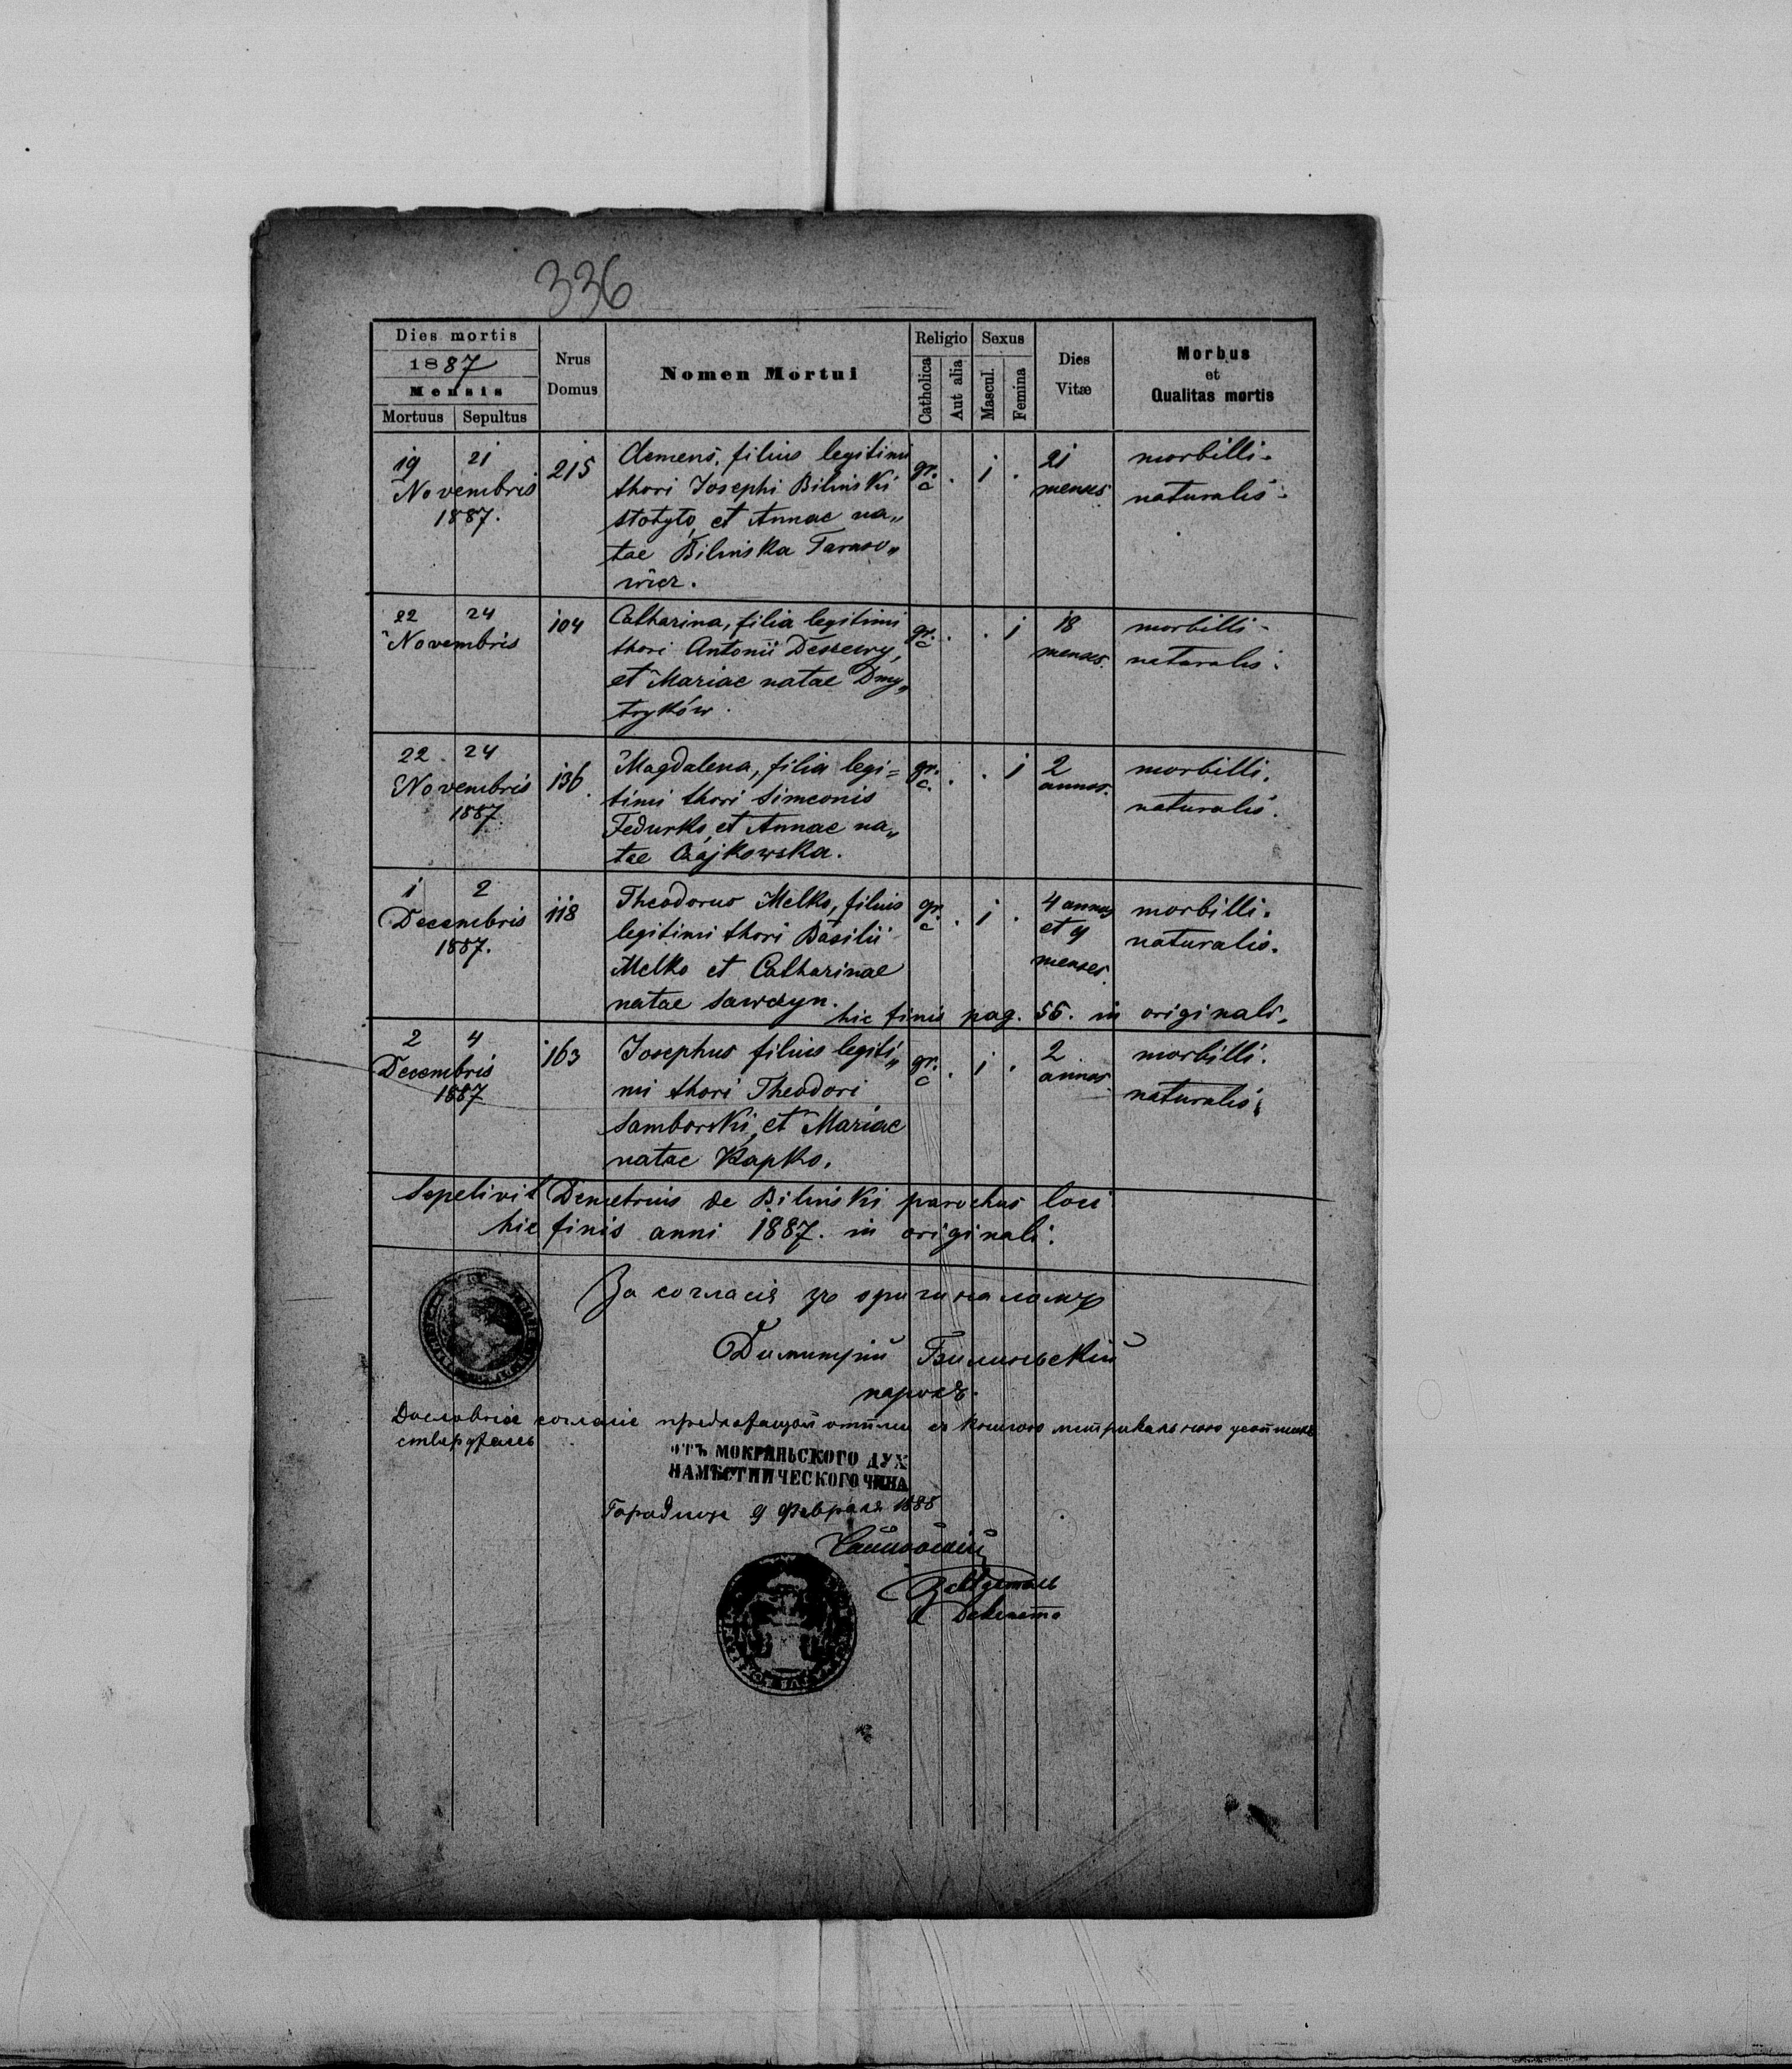 336
Dies mortis
1887
Mensis
Mortuus Sepultus
Nrus Domus
Nomen Mortui
Religio
Catholica
Aut alia
Sexus
Mascul.
Femina
Dies Vitæ
Morbus et Qualitas mortis
19 21 215 Clemens, filius legitimi gr. . 1 . 21 morbilli.
Novembris thori Josephi Biliński c menses naturalis.
1887. stotyło, et Annae na„
tae Bilińska Taraso„
wicz.
22 24 104 Catharina, filia legitimi gr. . . 1 18 morbilli.
Novembris thori Antonii Deszewy, c menses. naturalis.
et Mariae natae Dmy„
tryków.
22 24 136. Magdalena, filia legi= gr. . . 1 2 morbilli.
Novembris timi thori Simeonis c. annos. naturalis.
1887. Fedurko, et Annae na„
tae Czajkowska.
1 2 118 Theodorus Melko, filius gr. . 1 . 4 annos morbilli.
Decembris legitimi thori Basilii c et 9 naturalis.
1887. Melko et Catharinae menses
natae Sawczyn.
hic finis pag. 56. in originali.
2 4 163 Josephus filius legiti„ gr. . 1 . 2 morbilli.
Decembris mi thori Theodori c annos naturalis.
1887 Samborski, et Mariae
natae Kapko.
Sepelivit Demetrius de Biliński parochus loci
hic finis anni 1887. in originali.
За согласія зъ оригиналомъ
Димитрій Билиньскій
парохъ.
согласіе
ствердж
ОТЪ МОКРЯНЬСКОГО ДУХ
НАМѢСТНИЧЕСКОГО ЧИНА
9 Февраля 1888